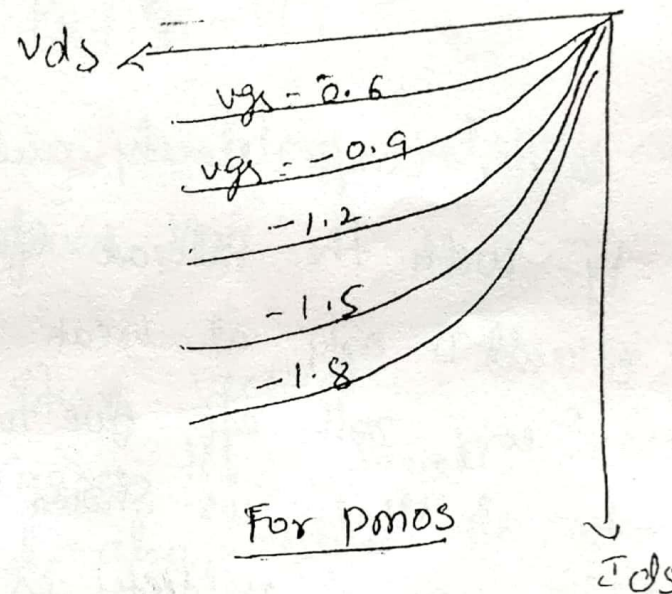 vds
vgs = -0.6
vgs = -0.9
-1.2
-1.5
-1.8
For pmos
Ids